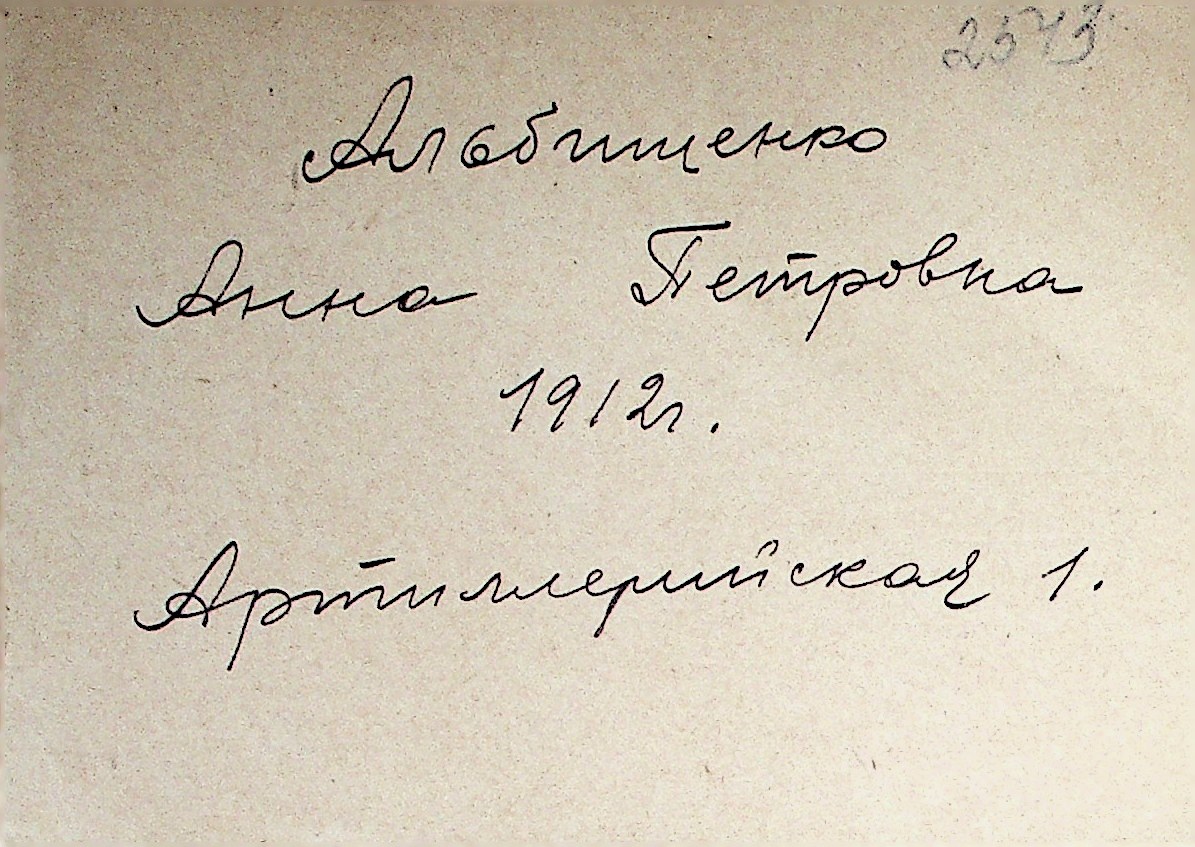 2573
Альбищенко
Анна Петровна
1912г.
Артиллерийская 1.